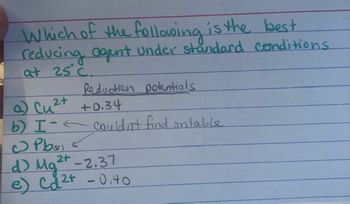 Which of the following is the best
reducing agent under standard conditions
at 25°C.
Reduction potentials
a) Cu²⁺ +0.34
b) I⁻ ← couldn't find on table
c) Pb(s) ←
d) Mg²⁺ -2.37
e) Cd²⁺ -0.40